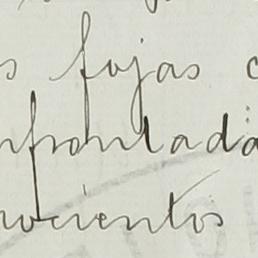 s fojas c
nfrontada
nocientos